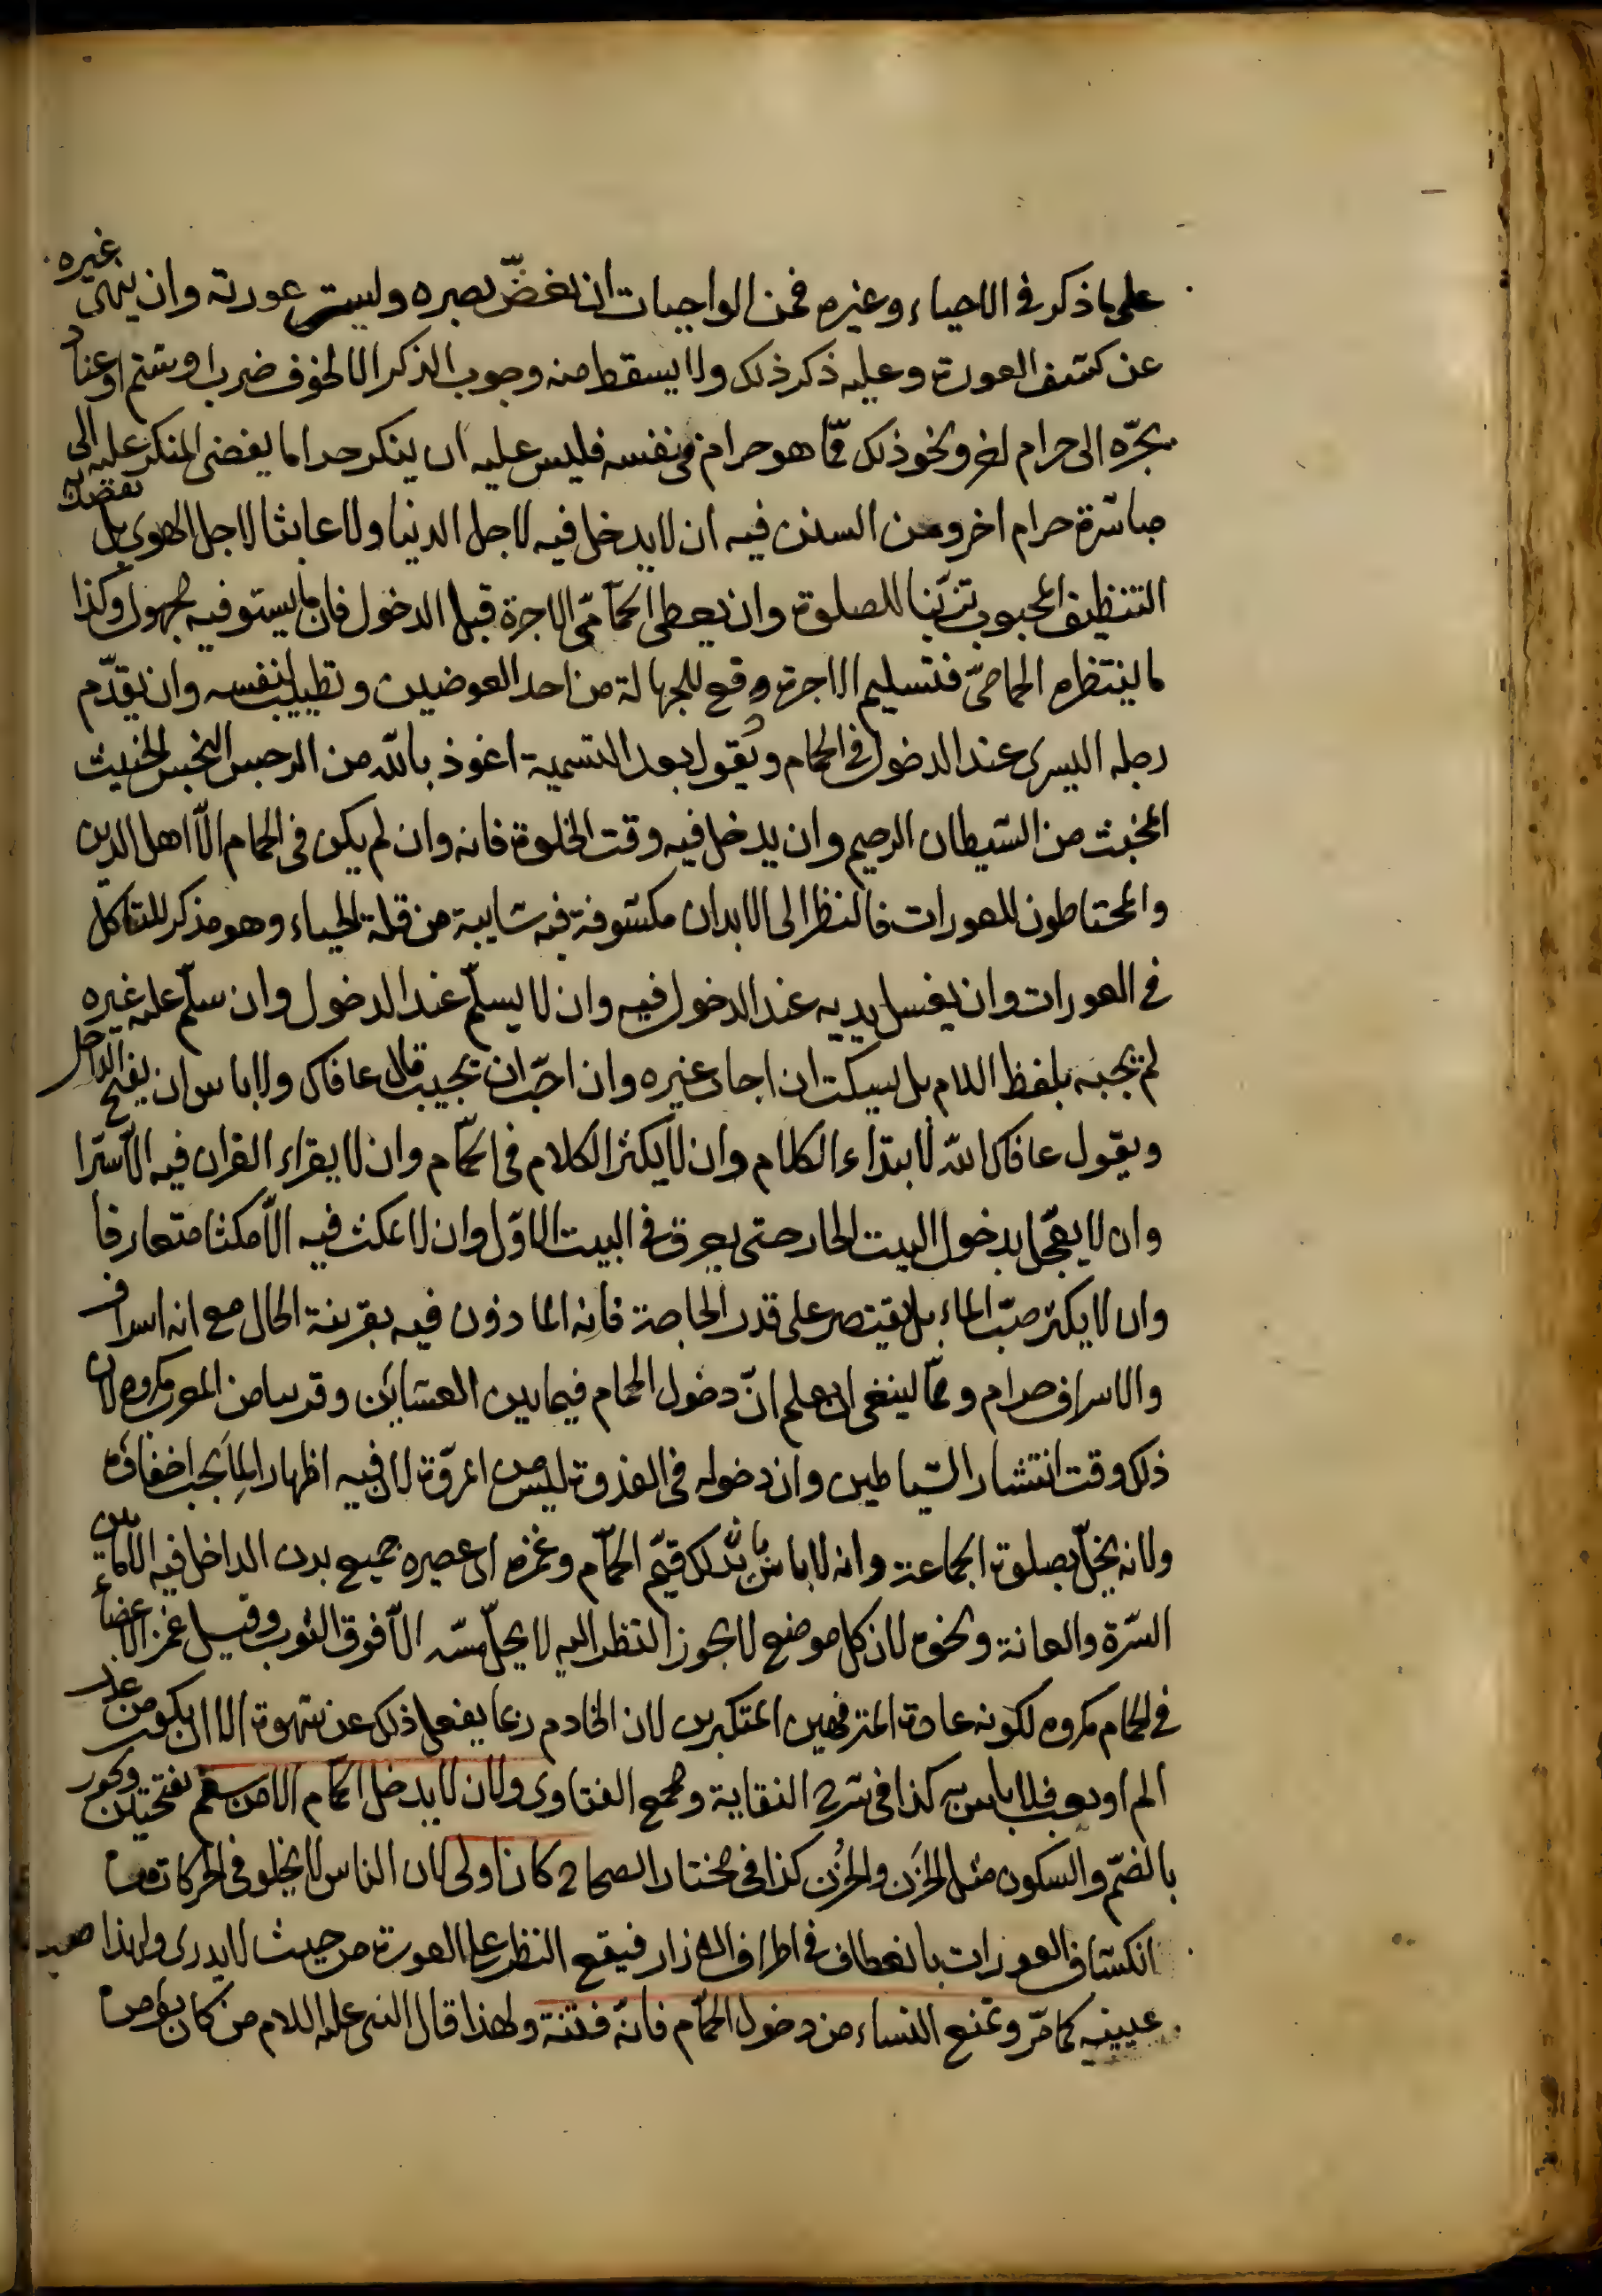 على ما ذكر في الاحياء وغيره فمن الواجبات ان يغضّ بصره وليستر عورته وان ينهى غيره
عن كشف العورة وعليه ذكر ذلك ولا يسقط منه وجوب الذكر الا لخوف ضرب او شتم او
يجرّه الى حرام اخر ونحو ذلك ممّا هو حرام في نفسه فليس عليه ان ينكر حراما يفضى المنكر عليه الى
مباشرة حرام اخر ومن السنن فيه ان لا يدخل فيه لاجل الدنيا ولا عابثا لاجل الهوى بل يقصد به
التنظيف المحبوب تزيّنا للصلوة وان يعطى الحمّامّى الاجرة قبل الدخول فان ما يستوفيه مجهول وكذا
ما ينتظره الحمامىّ فتسليم الاجرة دفع للجهالة من احد العوضين وتطييب لنفسه وان يقدّم
رجله اليسرى عند الدخول في الحمام ويقول بعد التسمية اعوذ بالله من الرجس النجس الخبيث
المخبث من الشيطان الرجيم وان يدخل فيه وقت الخلوة فانه وان لم يكن في الحمام الّا اهل الدين
والمحتاطون للعورات فالنظر الى الابدان مكشوفة فيه شايبة من قلة الحياء وهو مذكر للتأمّل
في العورات وان يغسل يديه عند الدخول فيه وان لا يسلّم عند الدخول وان سلّم عليه غيره
لم يجبه بلفظ السلام بل يسكت ان اجاب غيره وان احبّ ان يجيب قال عافاك ولا باس ان يفتح الداخل
ويقول عافاك الله لابتداء الكلام وان لا يكثر الكلام في الحمّام وان لا يقراء القران فيه الّا سرّا
وان لا يعجّل بدخول البيت الحار حتى يعرق في البيت الاوّل وان لا يمكث فيه الّا مكثا متعارفا
وان لا يكثر صبّ الماء بل يقتصر على قدر الحاجة فانه الماذون فيه بقرينة الحال مع انه اسراف
والاسراف حرام وممّا ينبغى ان يعلم انّ دخول الحمام فيما بين العشاين وقريبا من المغرب مكروه لان
ذلك وقت انتشار الشياطين وان دخوله في الغدوة ليس من المروّة لان فيه اظهار لما يجب اخفاؤه
ولانه يخلّ بصلوة الجماعة وانه لا باس بان يدلك قيّم الحمّام وغمزه اى عصره جميع بدن الداخل فيه الا ما بين
السرّة والعانة ونحوه لان كل موضع لا يجوز النظر اليه لا يحلّ مسّه الّا فوق الثوب وقيل غمز الاعضاء
في الحمام مكروه لكونه عادة المترفهين المتكبرين لان الخادم ربما يفعل ذلك عن شهوة الا ان يكون من عذر
الم او تعب فلا باس به كذا في شرح النقاية ومجمع الفتاوى ولان لا يدخل الحمّام الا من سقم بفتحتين ويجوز
بالضمّ والسكون مثل الحَزَن والحُزْن كذا في مختار الصحاح كان اولى لان الناس لا يخلو في الحركات من
انكشاف العورات بانعطاف في اطراف الازار فيقع النظر على العورة من حيث لا يدرى ولهذا
عينيه كما مرّ وتمنع النساء من دخول الحمّام فانّه فتنة ولهذا قال النبى عليه السلام من كان يؤمن